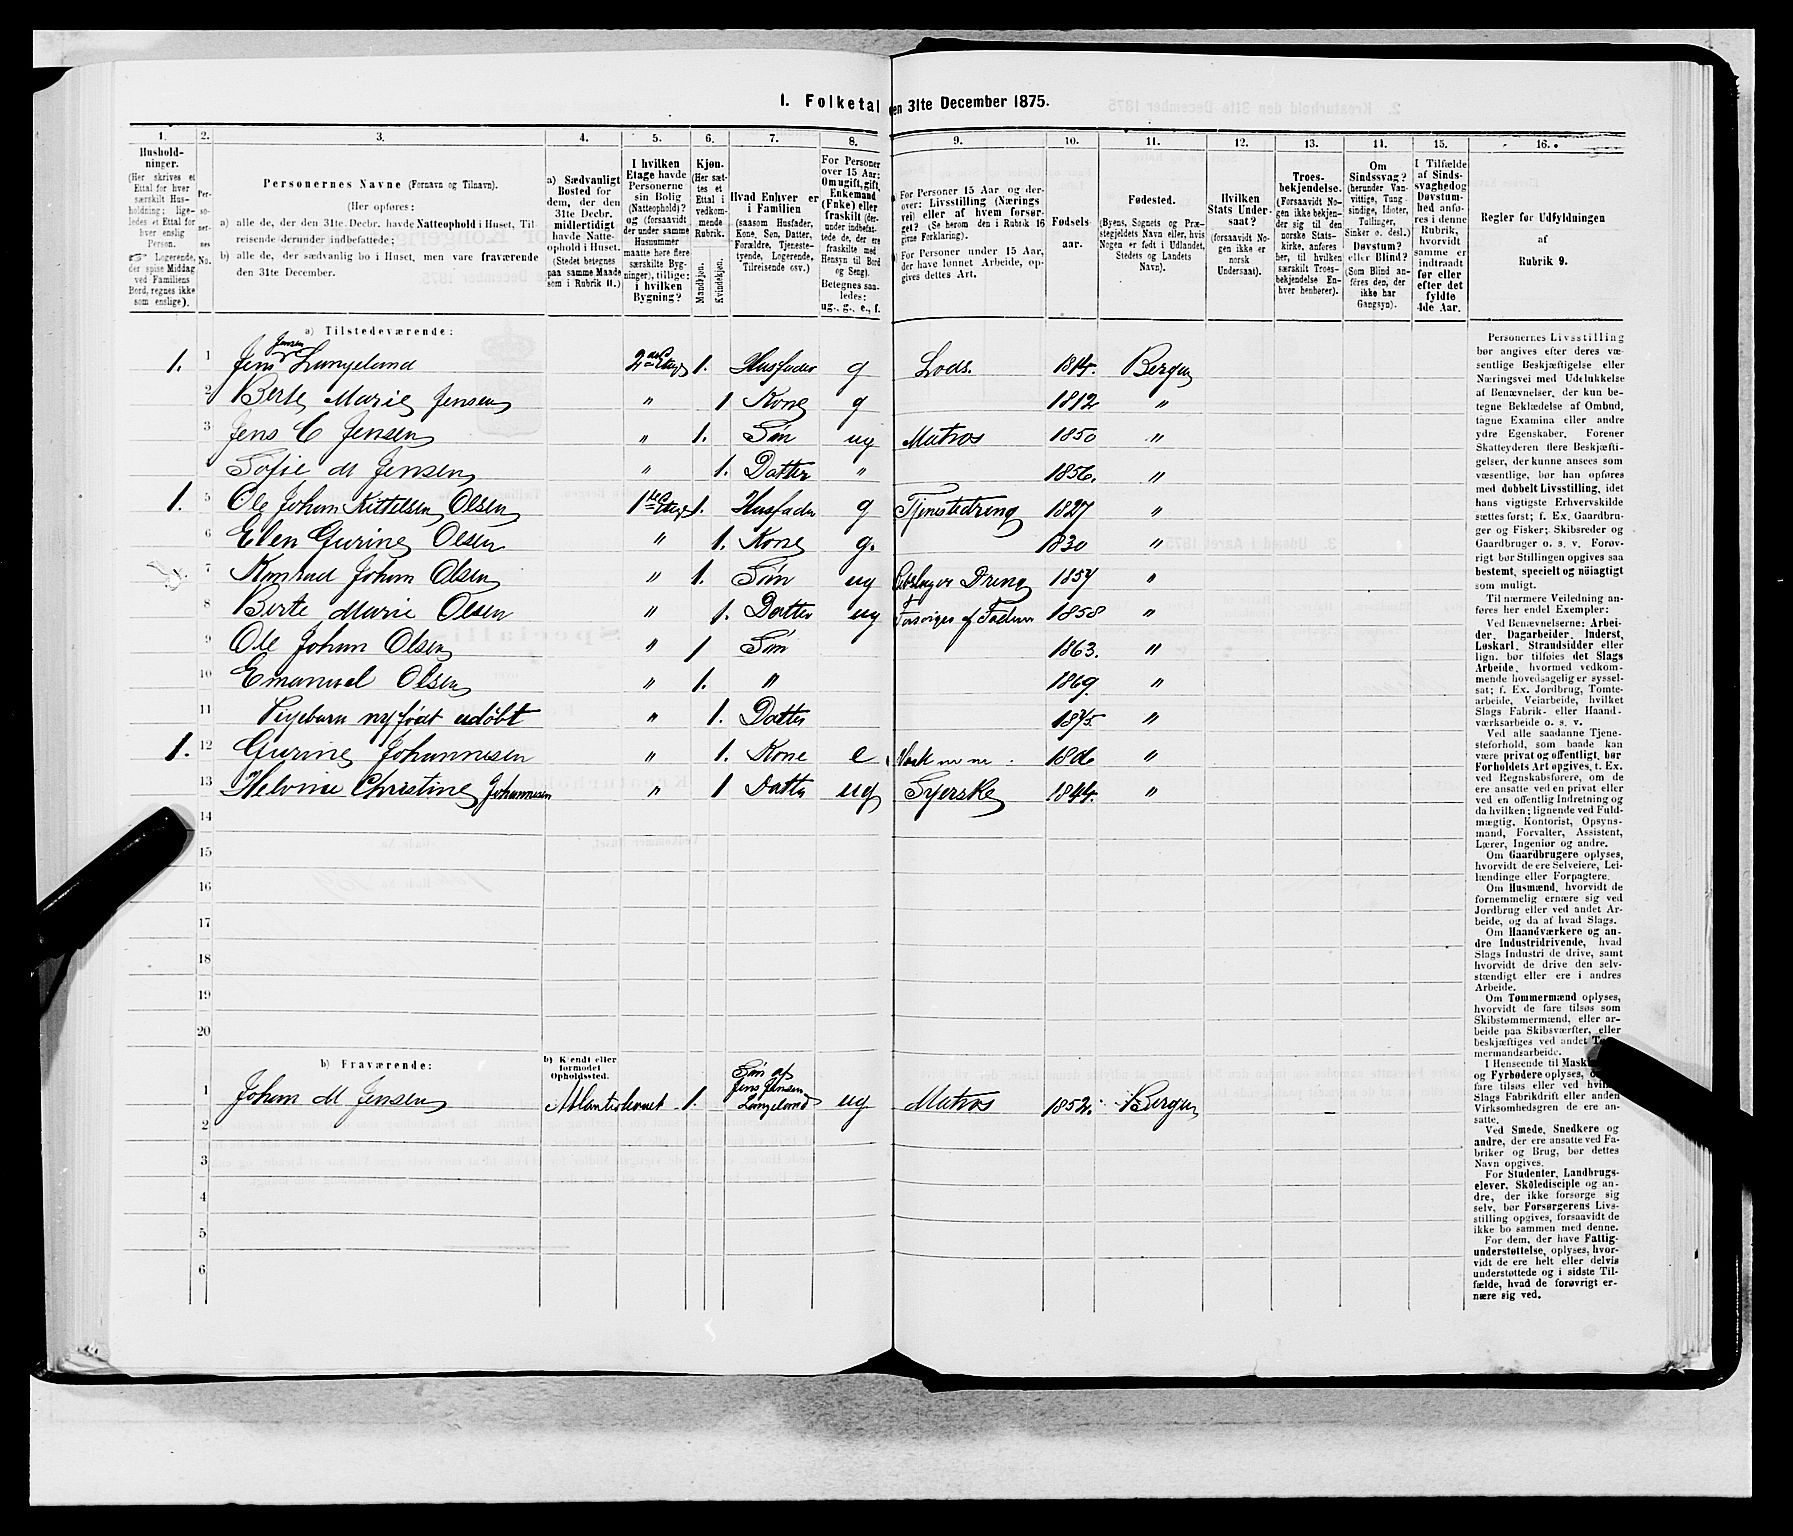 1. Folketal den 31te December 1875.
1. 2. 3. 4. 5. 6. 7. 8. 9. 10. 11. 12. 13. 14. 15. 16.
Husholdninger.
(Her skrives et
Ettal for hver
særskilt Husholdning;
ligeledes et Ettal for
hver enslig
Person.
Logerende,
der spise Middag
ved Familiens
Bord, regnes ikke
som enslige).
Personernes No.
Personernes Navne (Fornavn og Tilnavn).
(Her opføres:
a) alle de, der den 31te Decbr. havde Natteophold i Huset, Tilreisende derunder indbefattede;
b) alle de, der sædvanlig bo i Huset, men vare fraværende
den 31te December.
a) Sædvanligt
Bosted for
dem, der den
31te Decbr.
midlertidigt
havde Natteophold i Huset.
(Stedet betegnes
paa samme Maade
som i Rubrik 11.)
I hvilken
Etage havde
Personerne
sin Bolig
(Natteophold)?
og (forsaavidt
der under samme
Husnummer
maatte høre flere
særskilte Bygninger), tillige:
i hvilken
Bygning?
Kjøn.
(Her sættes et
Ettal i
vedkommende
Rubrik.
Mandkjøn.
Kvindekjøn.
Hvad Enhver er
i Familien
(saasom Husfader,
Kone, Søn, Datter,
Forældre, Tjenestetyende, Logerende,
Tilreisende osv.)
For Personer
over 15 Aar:
Om ugift, gift,
Enkemand
(Enke) eller
fraskilt (derunder indbefattede de, der ere
fraskilte med
Hensyn til Bord
og Seng).
Betegnes saaledes:
ug., g., e., f.
For Personer 15 Aar og derover: Livsstilling (Næringsvei) eller af hvem forsørget? (Se herom den i Rubrik 16
givne Forklaring).
For Personer under 15 Aar,
der have lønnet Arbeide, opgives dettes Art.
Fødselsaar.
Fødested.
(Byens, Sognets og Præstegjeldets Navn eller, hvis
Nogen er født i Udlandet,
Stedets og Landets
Navn).
Hvilken
Stats Undersaat?
(forsaavidt Nogen ikke er
norsk
Undersaat).
Troesbekjendelse.
(Forsaavidt Nogen ikke bekjender sig til den
norske Statskirke, anføres
her, til hvilken
særskilt Troesbekjendelse Enhver henhører).
Om
Sindssvag?
(herunder Vanvittige, Tungsindige, Idioter,
Tullinger,
Sinker o. desl.)
Døvstum?
eller Blind?
(Som Blind anføres den, der
ikke har
Gangsyn).
I Tilfælde
af Sindssvaghed og
Døvstumhed anføres i denne
Rubrik,
hvorvidt
samme er
indtraadt
før eller
efter det
fyldte
4de Aar.
Regler for Udfyldningen
af
Rubrik 9.
a) Tilstedeværende:
1. 1 Jens Jensen Langeland 2den Etage 1. Husfader g Lods. 1814. Bergen
2 Berte Marie Jensen " 1 Kone g 1812 "
3 Jens C Jensen " 1. Søn ug Matros 1850 "
4 Sofie M Jensen " 1. Datter " 1856. "
1. 5 Ole Johan Kittilsen Olsen 1ste Etage 1. Husfader g Tjenestedreng 1827 "
6 Elen Gurine Olsen " 1. Kone g. 1830 "
7 Konrad Johan Olsen " 1. Søn ug Dreng 1857 "
8 Berte Marie Olsen " 1. Datter ug Forsørges af Faderen 1858 "
9 Ole Johan Olsen " 1 Søn 1863. "
10 Emanuel Olsen " 1. " 1869. "
11 Pigebarn nyfødt udøbt " 1. Datter 1875. "
1. 12 Gurine Johannesen " 1. Kone e 1806 "
13 Helvine Christine Johannesen " 1 Datter ug Syerske 1844. "
14
15
16
17
18
19
20
b) Fraværende:
b) Kjendt eller
formodet
Opholdssted.
1 Johan M Jensen Atlanterhavet 1. Søn af Jens Jensen Langeland ug Matros 1852. Bergen
2
3
4
5
6
Personernes Livsstilling
bør angives efter deres væsentlige Beskjæftigelse eller
Næringsvei med Udelukkelse
af Benævnelser, der kun betegne Beklædelse af Ombud,
tagne Examina eller andre
ydre Egenskaber. Forener
Skatteyderen flere Beskjæftigelser, der kunne ansees som
væsentlige, bør han opføres
med dobbelt Livsstilling, idet
hans vigtigste Erhvervskilde
sættes først; f. Ex. Gaardbruger og Fisker; Skibsreder og
Gaardbruger o. s. v. Forøvrigt bør Stillingen opgives saa
bestemt, specielt og nöiagtigt
som muligt.
Til nærmere Veiledning anføres her endel Exempler:
Ved Benævnelserne: Arbeider, Dagarbeider, Inderst,
Løskarl, Strandsidder eller
lign. bør tilføies det Slags
Arbeide, hvormed vedkommende hovedsagelig er sysselsat; f. Ex. Jordbrug, Tomtearbeide, Veiarbeide, hvilket
Slags Fabrik- eller Haandværksarbeide o. s. v.
Ved alle saadanne Tjenesteforhold, som baade kan
være privat og offentligt, bør
Forholdets Art opgives, t. Ex.
ved Regnskabsførere, om de
ere ansatte ved en privat eller
ved en offentlig Indretning og
da hvilken; lignende ved Fuldmægtig, Kontorist, Opsynsmand, Forvalter, Assistent,
Lærer, Ingeniør og andre.
Om Gaardbrugere oplyses,
hvorvidt de ere Selveiere, Leilændinge eller Forpagtere.
Om Husmænd, hvorvidt de
fornemmelig ernære sig ved
Jordbrug eller ved andet Arbeide, og da af hvad Slags.
Om Haandværkere og andre Industridrivende, hvad
Slags Industri de drive, samt
hvorvidt de drive den selvstændigt eller ere i andres
Arbeide.
Om Tømmermænd oplyses,
hvorvidt de fare tilsøs som
Skibstømmermænd, eller arbeide paa Skibsværfter, eller
beskjæftiges ved andet Tømmermandsarbeide.
I Henseende til
og Fyrbødere oplyses,
fare tilsøs eller ved
Slags Fabrikdrift eller anden
Virksomhedsgren de ere ansatte.
Ved Smede, Snedkere og
andre, der ere ansatte ved Fabriker og Brug, bør dettes
Navn opgives.
For Studenter, Landbrugselever, Skoledisciple og andre, der ikke forsørge sig
selv, bør Forsørgerens Livsstilling opgives, forsaavidt de
ikke bo sammen med denne.
For dem, der have Fattigunderstøttelse, oplyses, hvorvidt de ere helt eller delvis
understøttede og i sidste Tilfælde, hvad de forøvrigt ernære sig ved.